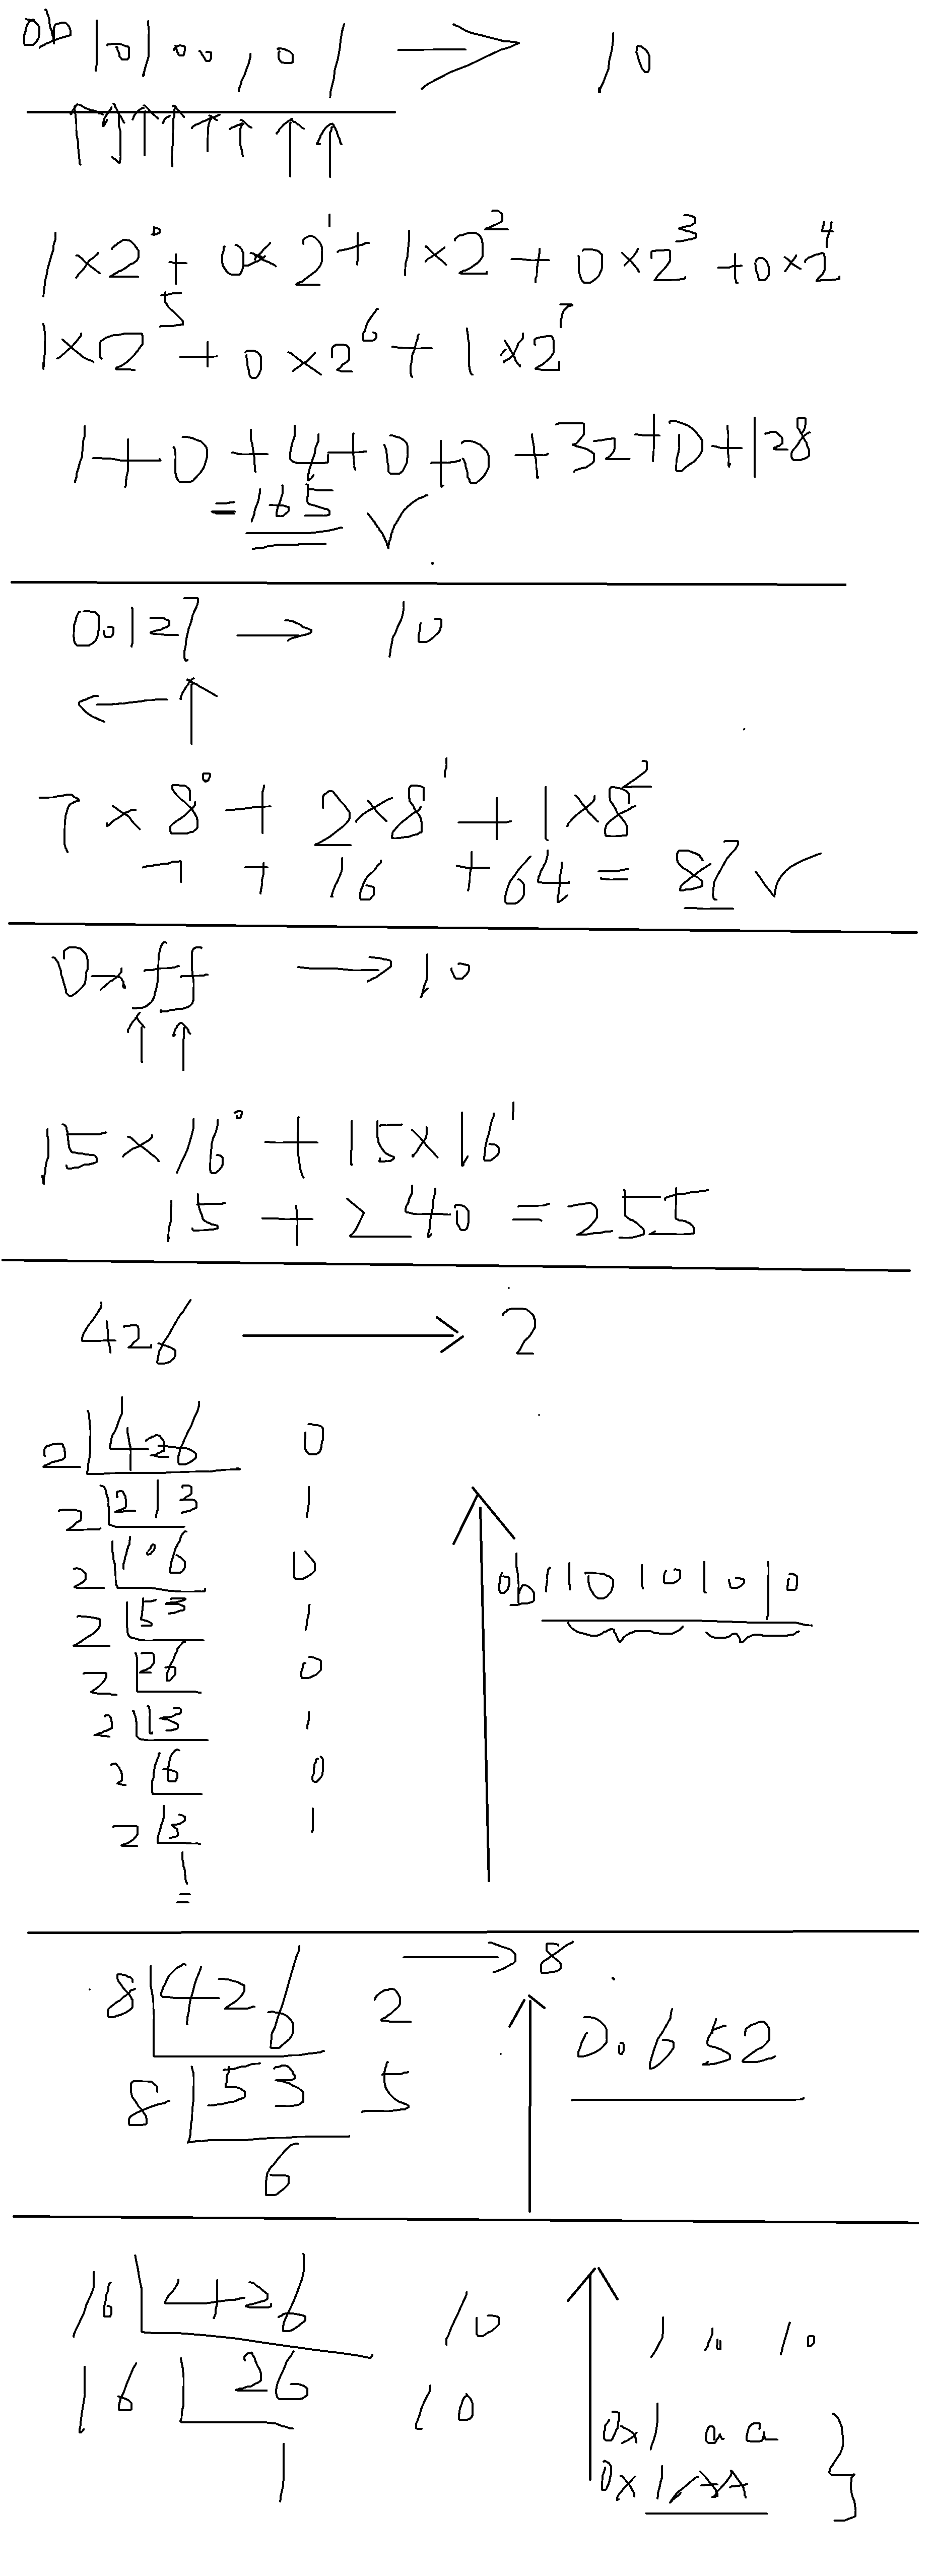 0b10100101 → 10
1×2⁰ + 0×2¹ + 1×2² + 0×2³ + 0×2⁴
1×2⁵ + 0×2⁶ + 1×2⁷
1+0+4+0+0+32+0+128
=165 ✓
0o127 → 10
←
7×8⁰ + 2×8¹ + 1×8²
7 + 16 + 64 = 87 ✓
0xff → 10
15×16⁰ + 15×16¹
15 + 240 = 255
426 → 2
2 426 0
2 213 1
2 106 0
0b110101010
2 53 1
2 26 0
2 13 1
2 6 0
2 3 1
1
=
→ 8
8 426 2
0o652
8 53 5
6
16 426 10
1 10 10
16 26 10
0x1aa
1
0x1AA